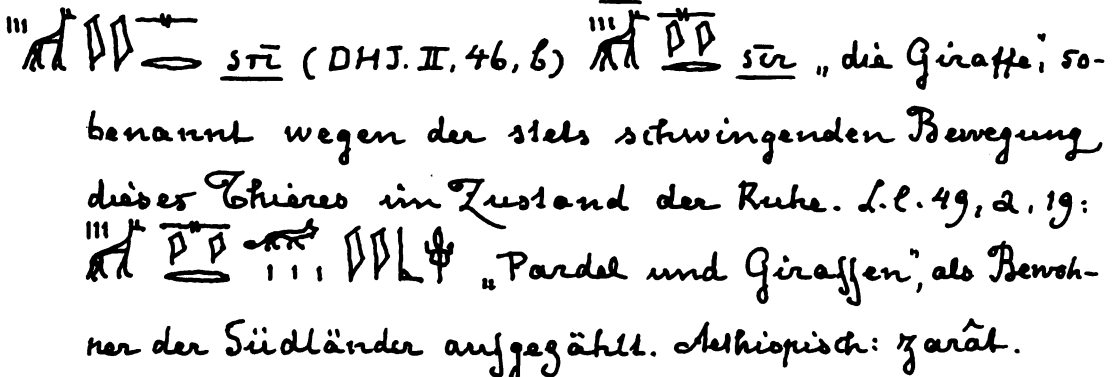 srī (DHJ. II, 46, b) sīr „die Giraffe“, so-
benannt wegen der stets schwingenden Bewegung
dieses Thieres im Zustand der Ruhe. L.l. 49, a, 19:
„Pardel und Giraffen“, als Bewoh-
ner der Südländer aufgezählt. Aethiopisch: zarât.